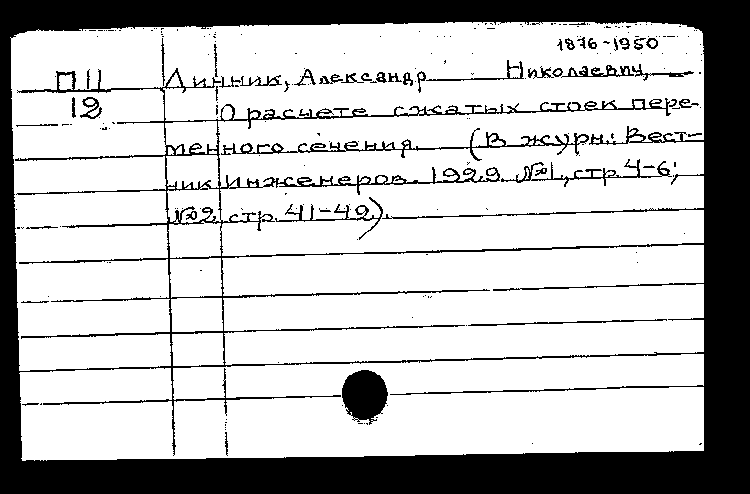 1876-1950
П 11 Динник, Александр Николаевич,
12 О расчете сжатых стоек пере-
менного сечения. (В журн.: Вест-
ник Инженеров. 1929. №1, стр. 4-6;
№2 стр. 41-42).